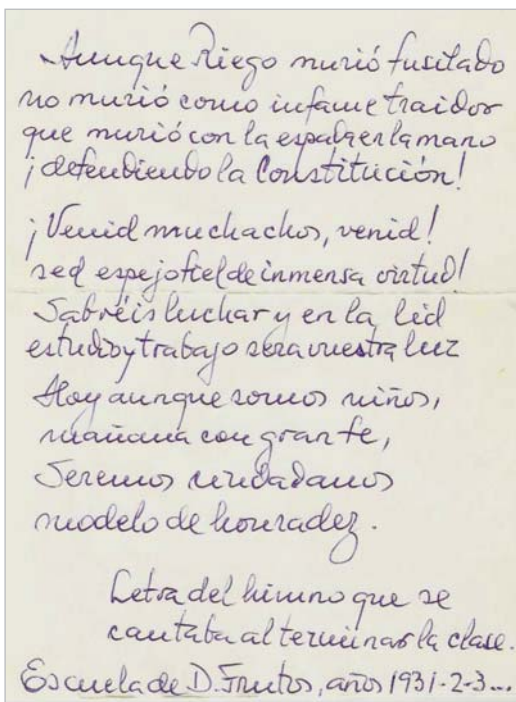 Aunque Riego murió fusilado
no murió como infame traidor
que murió con la espada en la mano
¡defendiendo la Constitución!
¡Venid muchachos, venid!
sed espejo fiel de inmensa virtud!
Sabréis luchar y en la lid
estudio y trabajo sera vuestra luz
Hoy aunque somos niños,
mañana con gran fe,
Seremos ciudadanos
modelo de honradez.
Letra del himno que se
cantaba al terminar la clase.
Escuela de D. Frutos, años 1931-2-3...